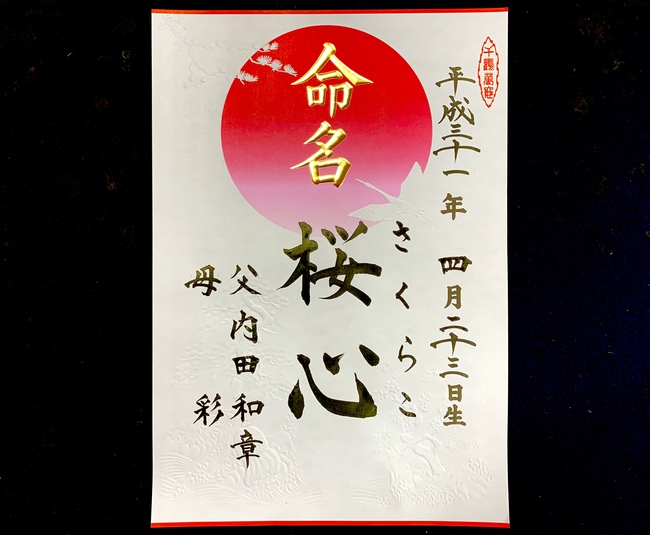 千鶴萬亀
平成三十一年 四月二十三日生
命名
さくらこ
桜心
父 内田和章
母 彩